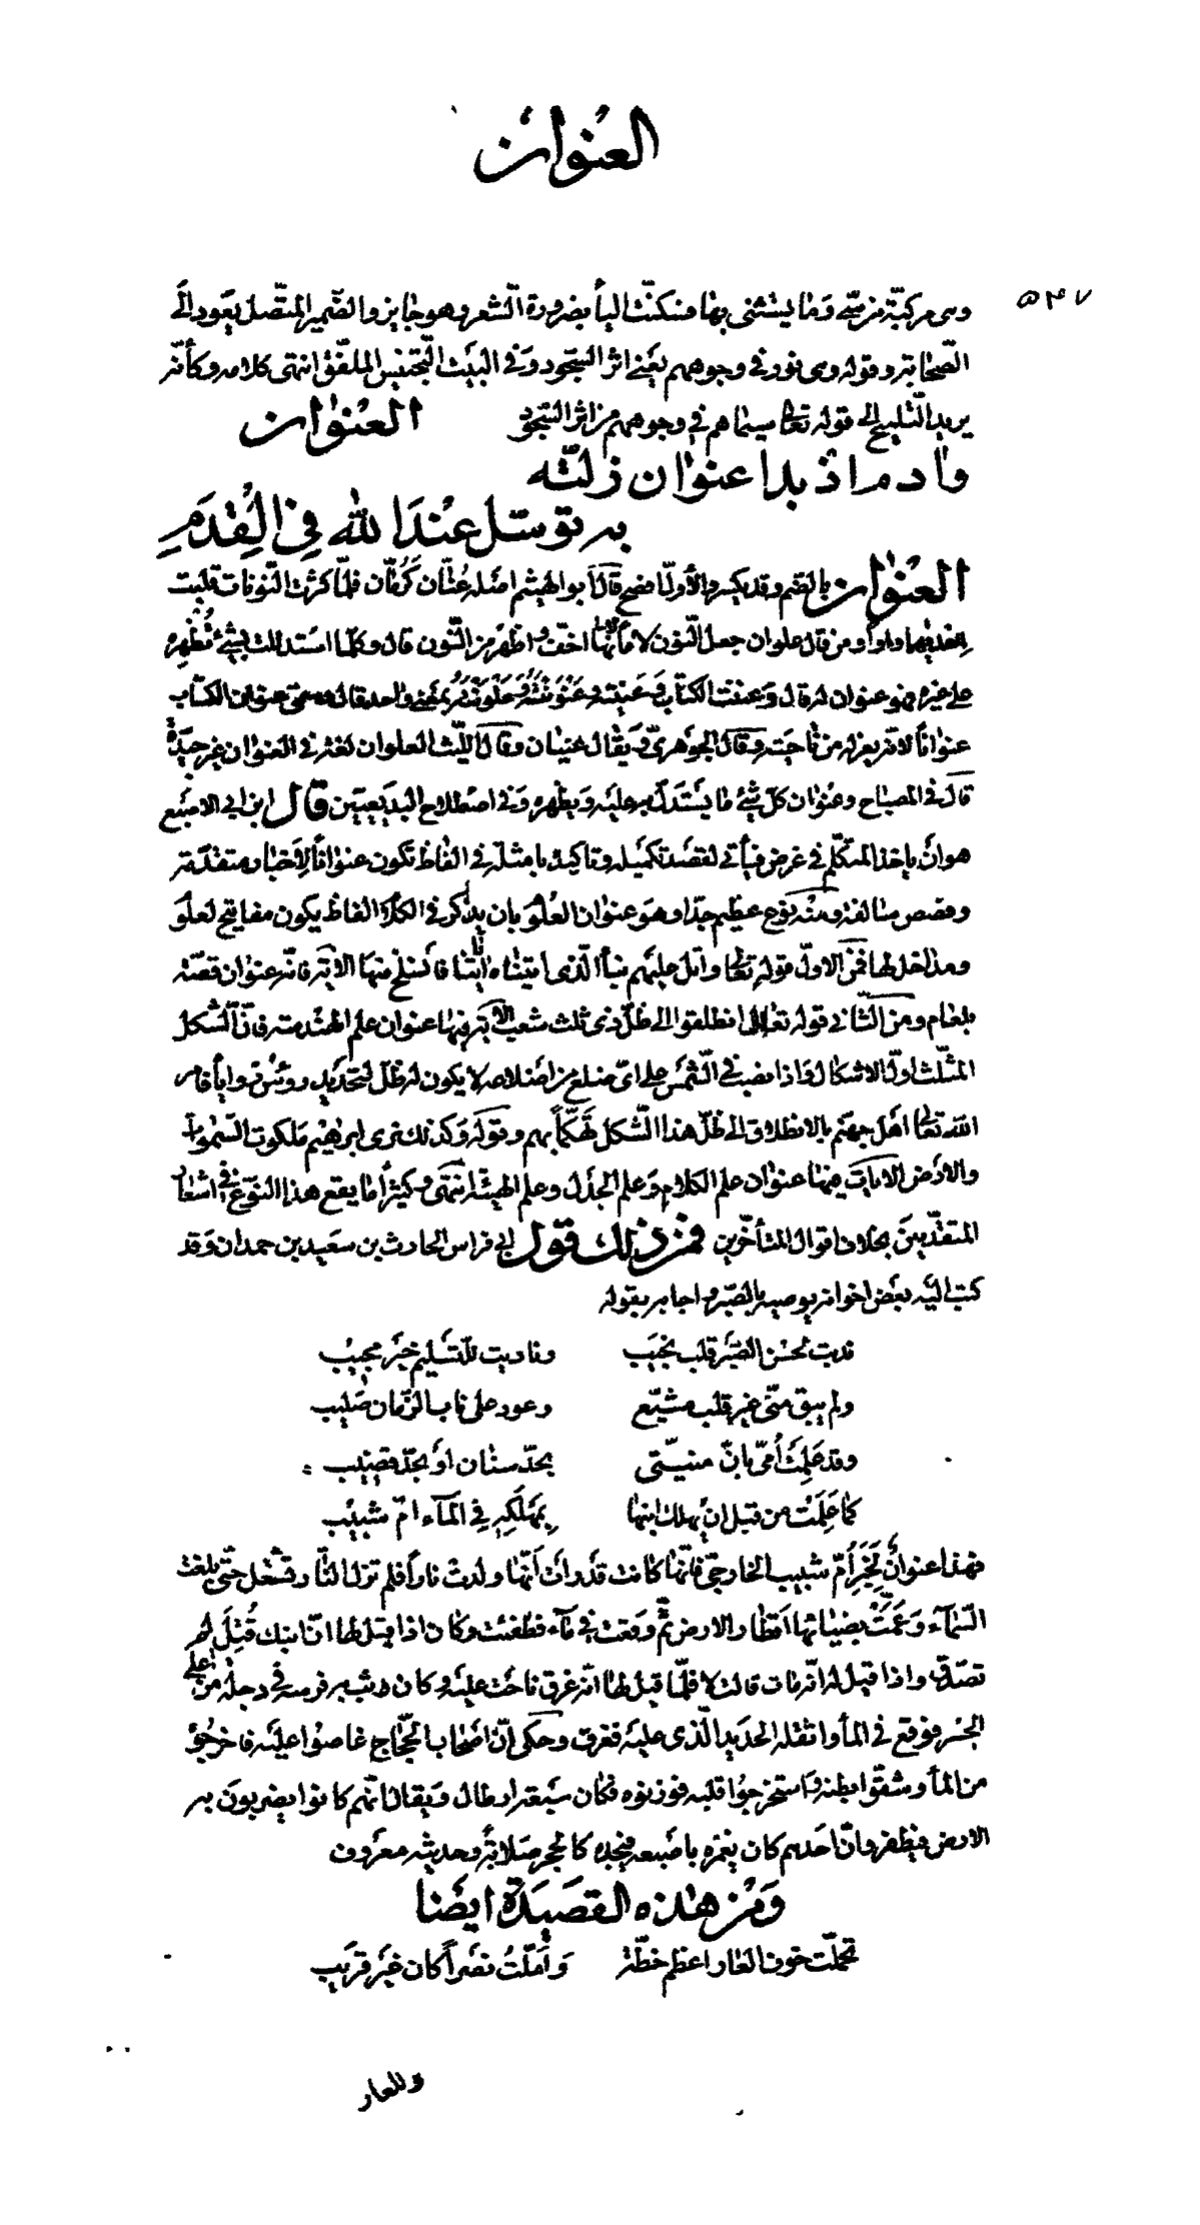 العنوان
٥٤٧
وسى مركبّة من سّى وما يستثنى بها فسكنت اليأ بضرورة الشعر وهو جايز والضمير المتّصل يعود الى
الصّحابة وقوله وسى نور فى وجوههم يعنى اثر السّجود وفى البيت التّجنيس الملفّق انتهى كلامه وكأنّه
يريد التّلميح الى قوله تعالى سيماهم فى وجوههم من اثر السّجود العنوان
وادم اذ بدا عنوان زلّته
به توسّل عند الله فى القِدَمِ
العنوان بالضّم وقد يكسر والأوّل افصح قال ابو الهيثم اصله عُنّان كرُمّان فلمّا كثرت النّونات قلبت
احديها واواً ومن قال علوان جعل النّون لاماً لانّها اخفّ واظهر من النّون قال وكلّما استدللت بشئ تُظهره
على غيره فهو عنوان له قال وعننت الكتاب وعنّيته وعَنْوَنْتُهُ وعَلْوَنْتُهُ بمعنى واحد قال وسمّى عنوان الكتاب
عنواناً لانّه يعنّ له من ناحيته وقال الجوهرىّ ويقال عنيان وقال اللّيث العلوان لغة فى العنوان غير جيّدة
قال فى المصباح وعنوان كلّ شئ ما يستدلّ به عليه ويظهره وفى اصطلاح البديعيّين قال ابن ابى الاصبع
هو ان يأخذ المتكلّم فى غرض فيأتى لقصد تكميله وتاكيده بامثلة فى الفاظ تكون عنواناً لأخبار متقدّمة
وقصص سالفة ومنه نوع عظيم جدّا وهو عنوان العلوم بان يذكر فى الكلام الفاظ يكون مفاتيح لعلوم
ومداخل لها فمن الاوّل قوله تعالى واتل عليهم نبأ الّذى اتيناه اياتنا فانسلخ منها الاية فانّه عنوان قصّة
بلعام ومن الثّانى قوله تعالى انطلقوا الى ظلّ ذى ثلث شعب الاية فيها عنوان علم الهندسة فانّ الشكل
المثلّث اوّل الاشكال واذا نصب فى الشّمس على اىّ ضلع من اضلاعه لا يكون له ظلّ لتحديد رؤس زواياه فامر
الله تعالى اهل جهنّم بالانطلاق الى ظلّ هذا الشّكل تهكّماً بهم وقوله وكذلك نرى ابرهيم ملكوت السّموات
والارض الايات فيها عنوان علم الكلام وعلم الجدل وعلم الهيئة انتهى وكثيراً ما يقع هذا النّوع فى اشعار
المتقدّمين بخلاف اقوال المتأخّرين فمن ذلك قول ابى فراس الحارث بن سعيد بن حمدان وقد
كتب اليه بعض اخوانه يوصيه بالصّبر واجابه بقوله
ندبت لحسن الصّبر قلب نجيب وناديت للتّسليم خير مجيب
ولم يبق منّى غير قلب مشيّع وعود على ناب الزّمان صليب
وقد علمت أمّى بانّ منيّتى بحدّ سنان او بحدّ قضيب
كما علمت من قبل ان يهلك ابنها بمهلكه فى المآء امّ شبيب
فهذا عنوان لخبر أمّ شبيب الخارجىّ فانّها كانت قد رات انّها ولدت ناراً فلم تزل النّار تشتعل حتّى بلغت
السّمآء وعمّت بضيائها اقطار الارض ثمّ وقعت فى مآء فطفئت وكان اذا قيل لها انّ ابنك قُتِل لم
تصدّق واذا قيل لها انّه مات قالت لا فلمّا قيل لها انّه غرق ناحت عليه وكان وثب به فرسه فى دجلة من اعلى
الجسر فوقع فى المأ واثقله الحديد الّذى عليه فغرق وحكى انّ اصحاب الحجّاج غاصوا عليه فاخرجوه
من المأ وشقّوا بطنه واستخرجوا قلبه فوزنوه فكان سبعة ارطال ويقال انّهم كانوا يضربون به
الارض فيظفر وانّ احدهم كان يغمزه باصبعه فيجده كالحجر صلابة وحديثه معروف
ومن هذه القصيدة ايضا
تحمّلت خوف العار اعظم خطّة وأمّلتُ نصراً كان غير قريب
وللعار